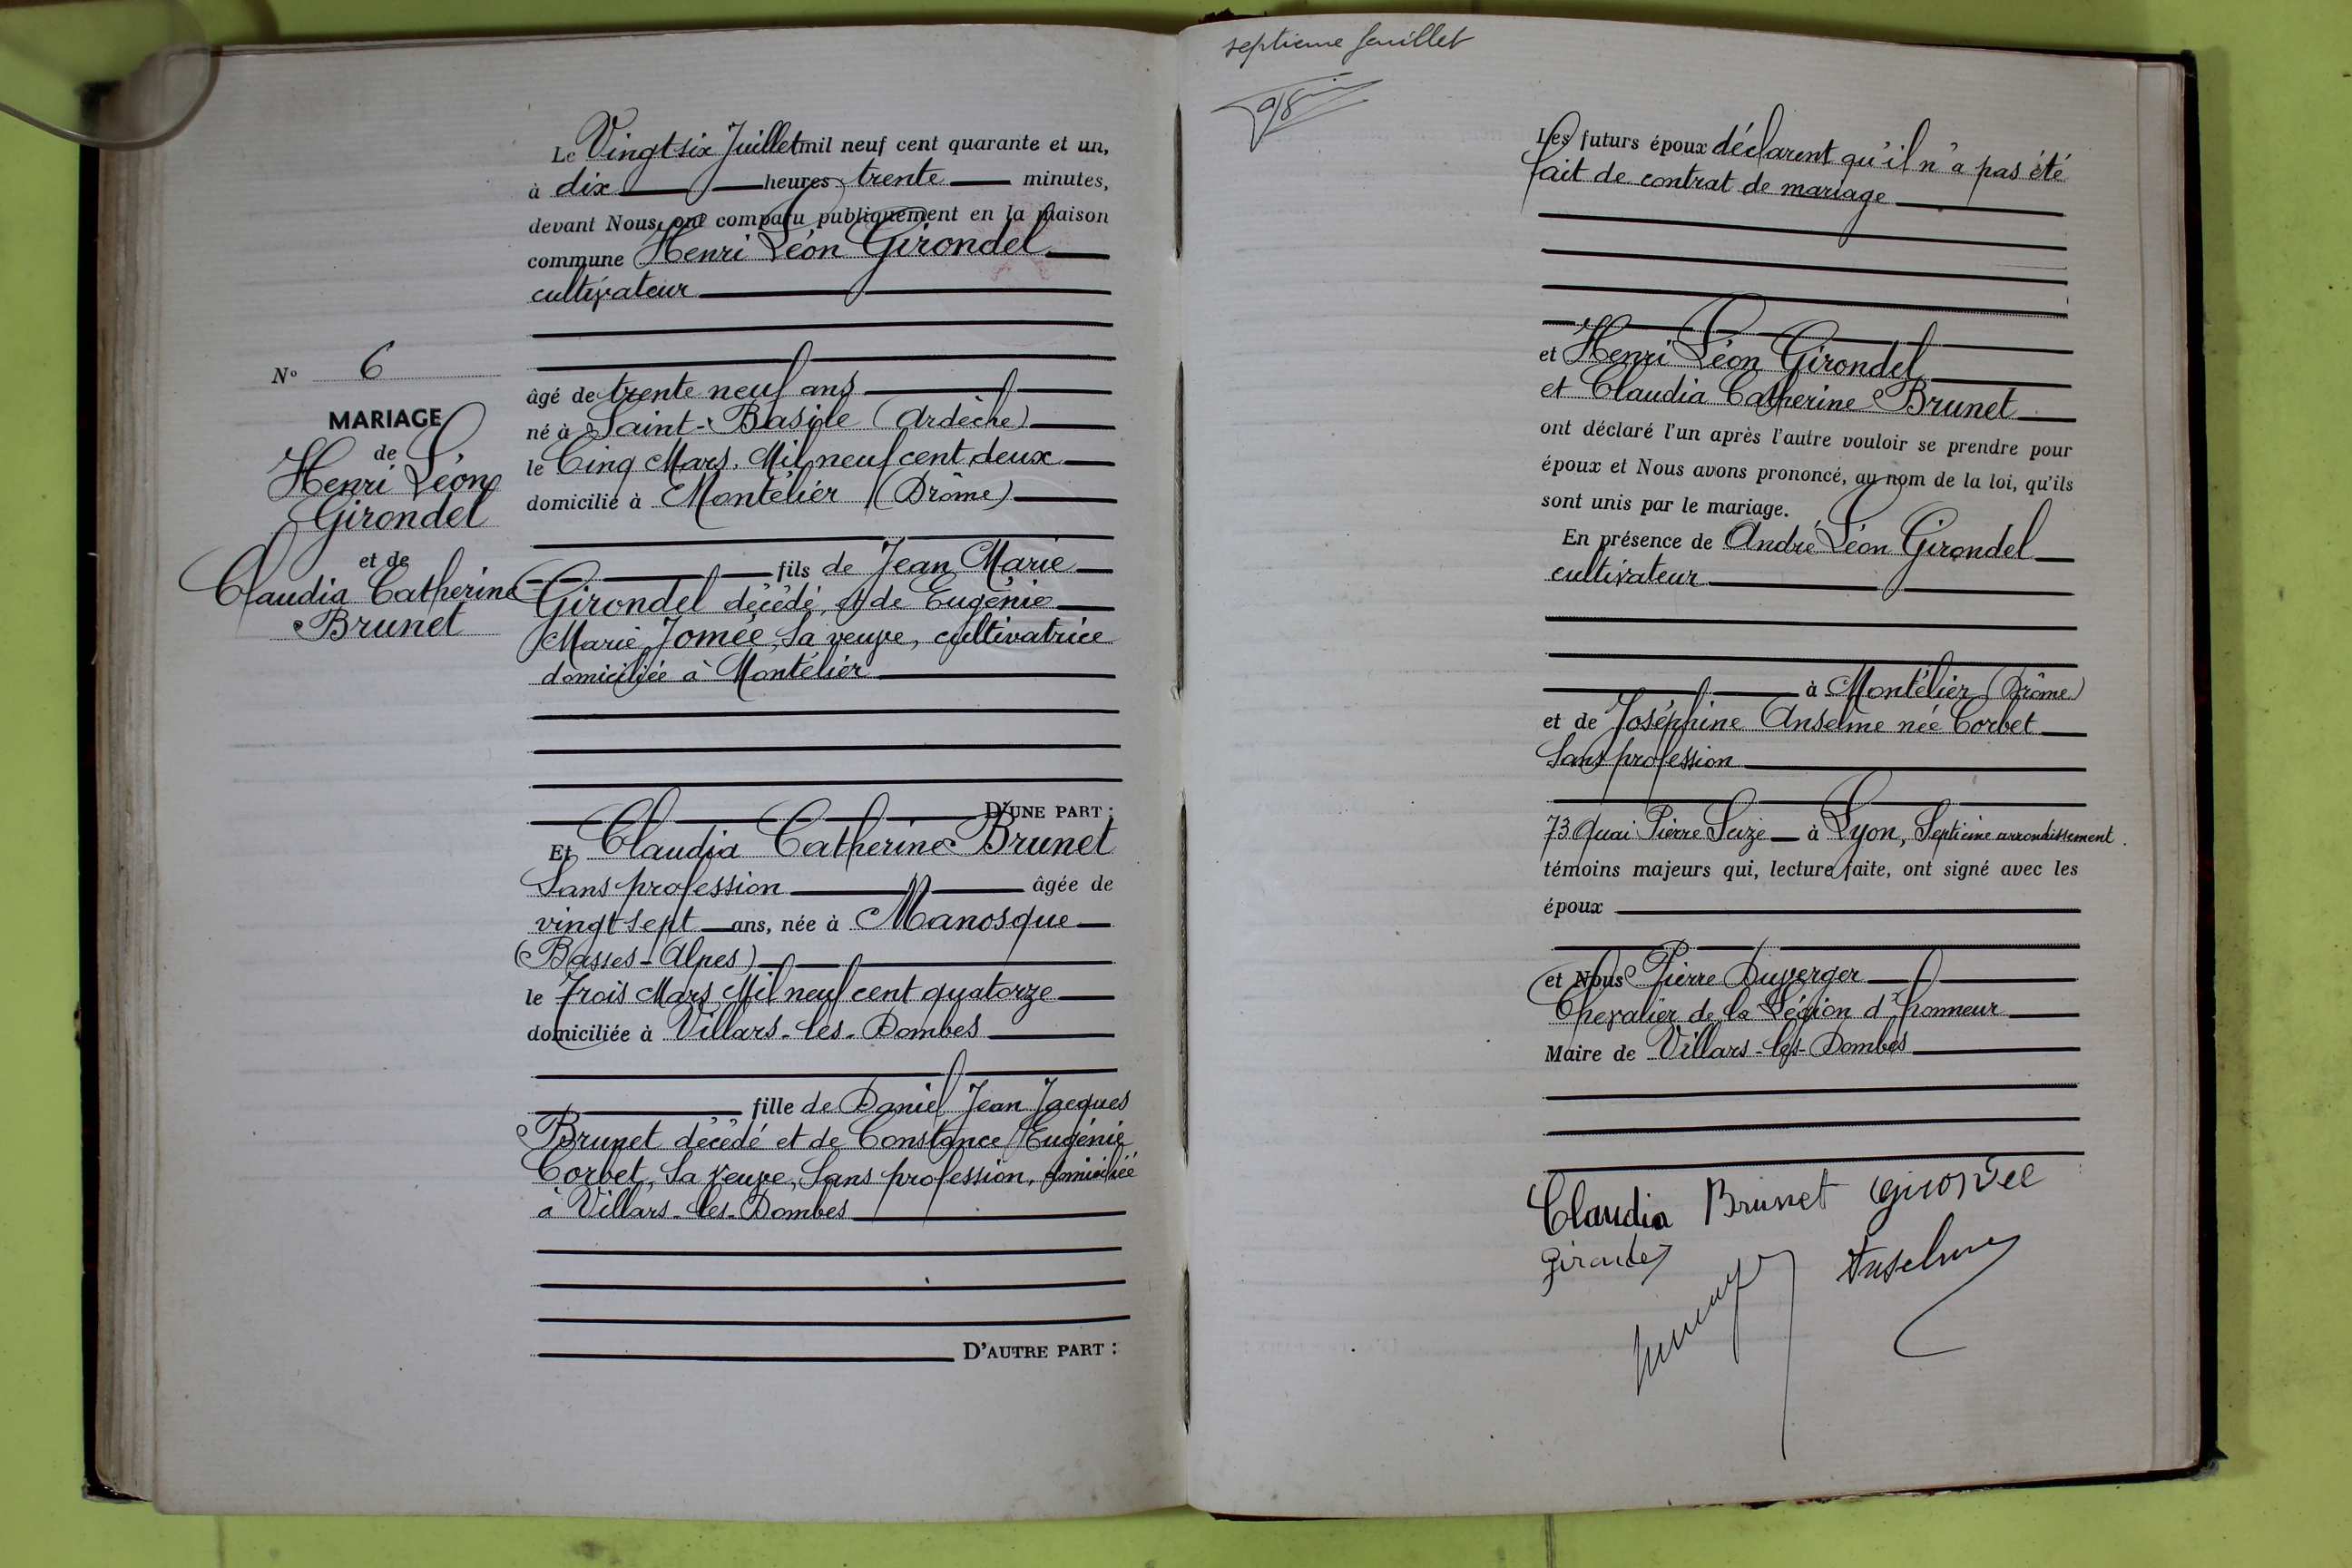 N° 6
MARIAGE
de
Henri Léon
Girondel
et de
Claudia Catherine
Brunet
Le Vingt six Juillet mil neuf cent quarante et un,
à dix heures trente minutes,
devant Nous, ont comparu publiquement en la maison
commune Henri Léon Girondel
cultivateur
âgé de trente neuf ans
né à Saint-Basile (Ardèche)
le Cinq Mars Mil neuf cent deux
domicilié à Montélier (Drôme)
fils de Jean Marie
Girondel décédé, et de Eugénie
Marie Jomée, sa veuve, cultivatrice
domiciliée à Montélier
D'UNE PART :
Et Claudia Catherine Brunet
Sans profession âgée de
vingt sept ans, née à Manosque
(Basses-Alpes)
le Trois Mars Mil neuf cent quatorze
domiciliée à Villars-les-Dombes
fille de Daniel Jean Jacques
Brunet décédé et de Constance Eugénie
Corbet, sa veuve, Sans profession, domiciliée
à Villars-les-Dombes
D'AUTRE PART :
septieme feuillet
Les futurs époux déclarent qu'il n'a pas été
fait de contrat de mariage
et Henri Léon Girondel
et Claudia Catherine Brunet
ont déclaré l'un après l'autre vouloir se prendre pour
époux et Nous avons prononcé, au nom de la loi, qu'ils
sont unis par le mariage.
En présence de André Léon Girondel
cultivateur
à Montélier (Drôme)
et de Joséphine Anselme née Corbet
Sans profession
73 Quai Pierre Seize à Lyon, Septième arrondissement.
témoins majeurs qui, lecture faite, ont signé avec les
époux
et Nous Pierre Duverger
Chevalier de la Légion d'honneur
Maire de Villars-les-Dombes
Claudia Brunet Girondel
Girondel Anselme